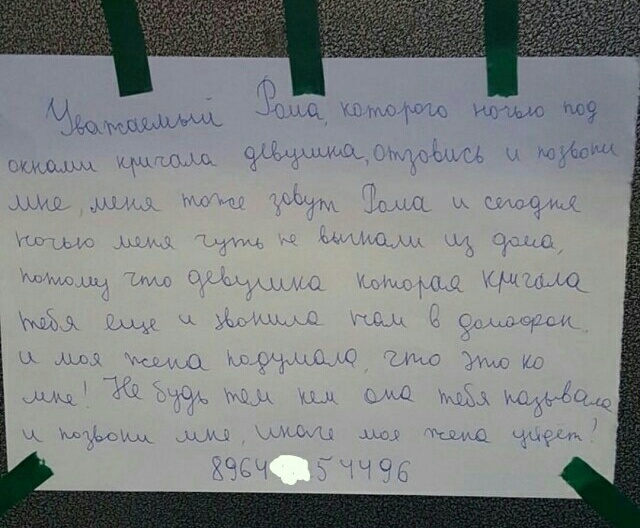 Уважаемый Рома, которого ночью под
окнами кричала девушка, отзовись и позвони
мне, меня тоже зовут Рома и сегодня
ночью меня чуть не выгнали из дома,
потому что девушка которая кричала
тебя еще и звонила нам в домофон
и моя жена подумала, что это ко
мне! Не будь тем кем она тебя называла
и позвони мне, иначе моя жена уйдет!
8964 54496